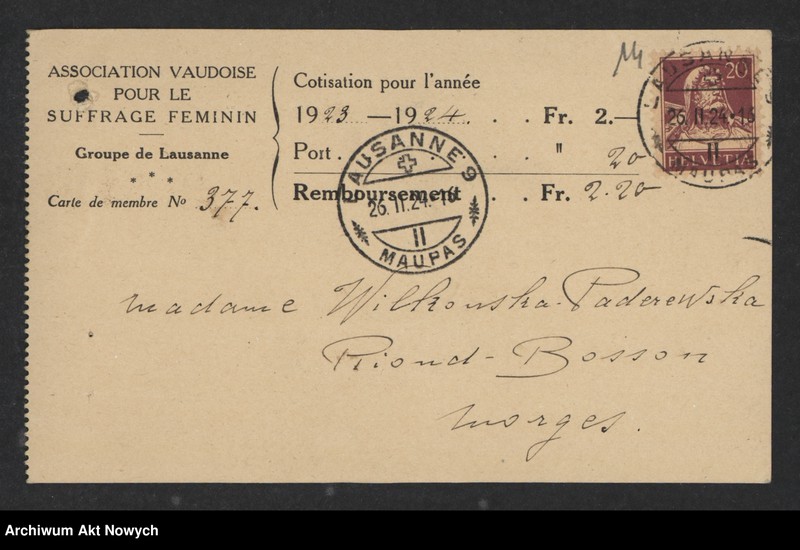 ASSOCIATION VAUDOISE
POUR LE
SUFFRAGE FEMININ
Groupe de Lausanne
* * *
Carte de membre No 377.
Cotisation pour l'année
1923 — 1924. . . Fr. 2.—
Port . . . . . " 20
Remboursement . . Fr. 2.20
LAUSANNE 9
26.II.24.-16
II
MAUPAS
20
LAUSANNE 9
26.II.24.-16
II
HELVETIA
MAUPAS
Madame Wilkonska-Paderewska
Riond-Bosson
Morges.
Archiwum Akt Nowych